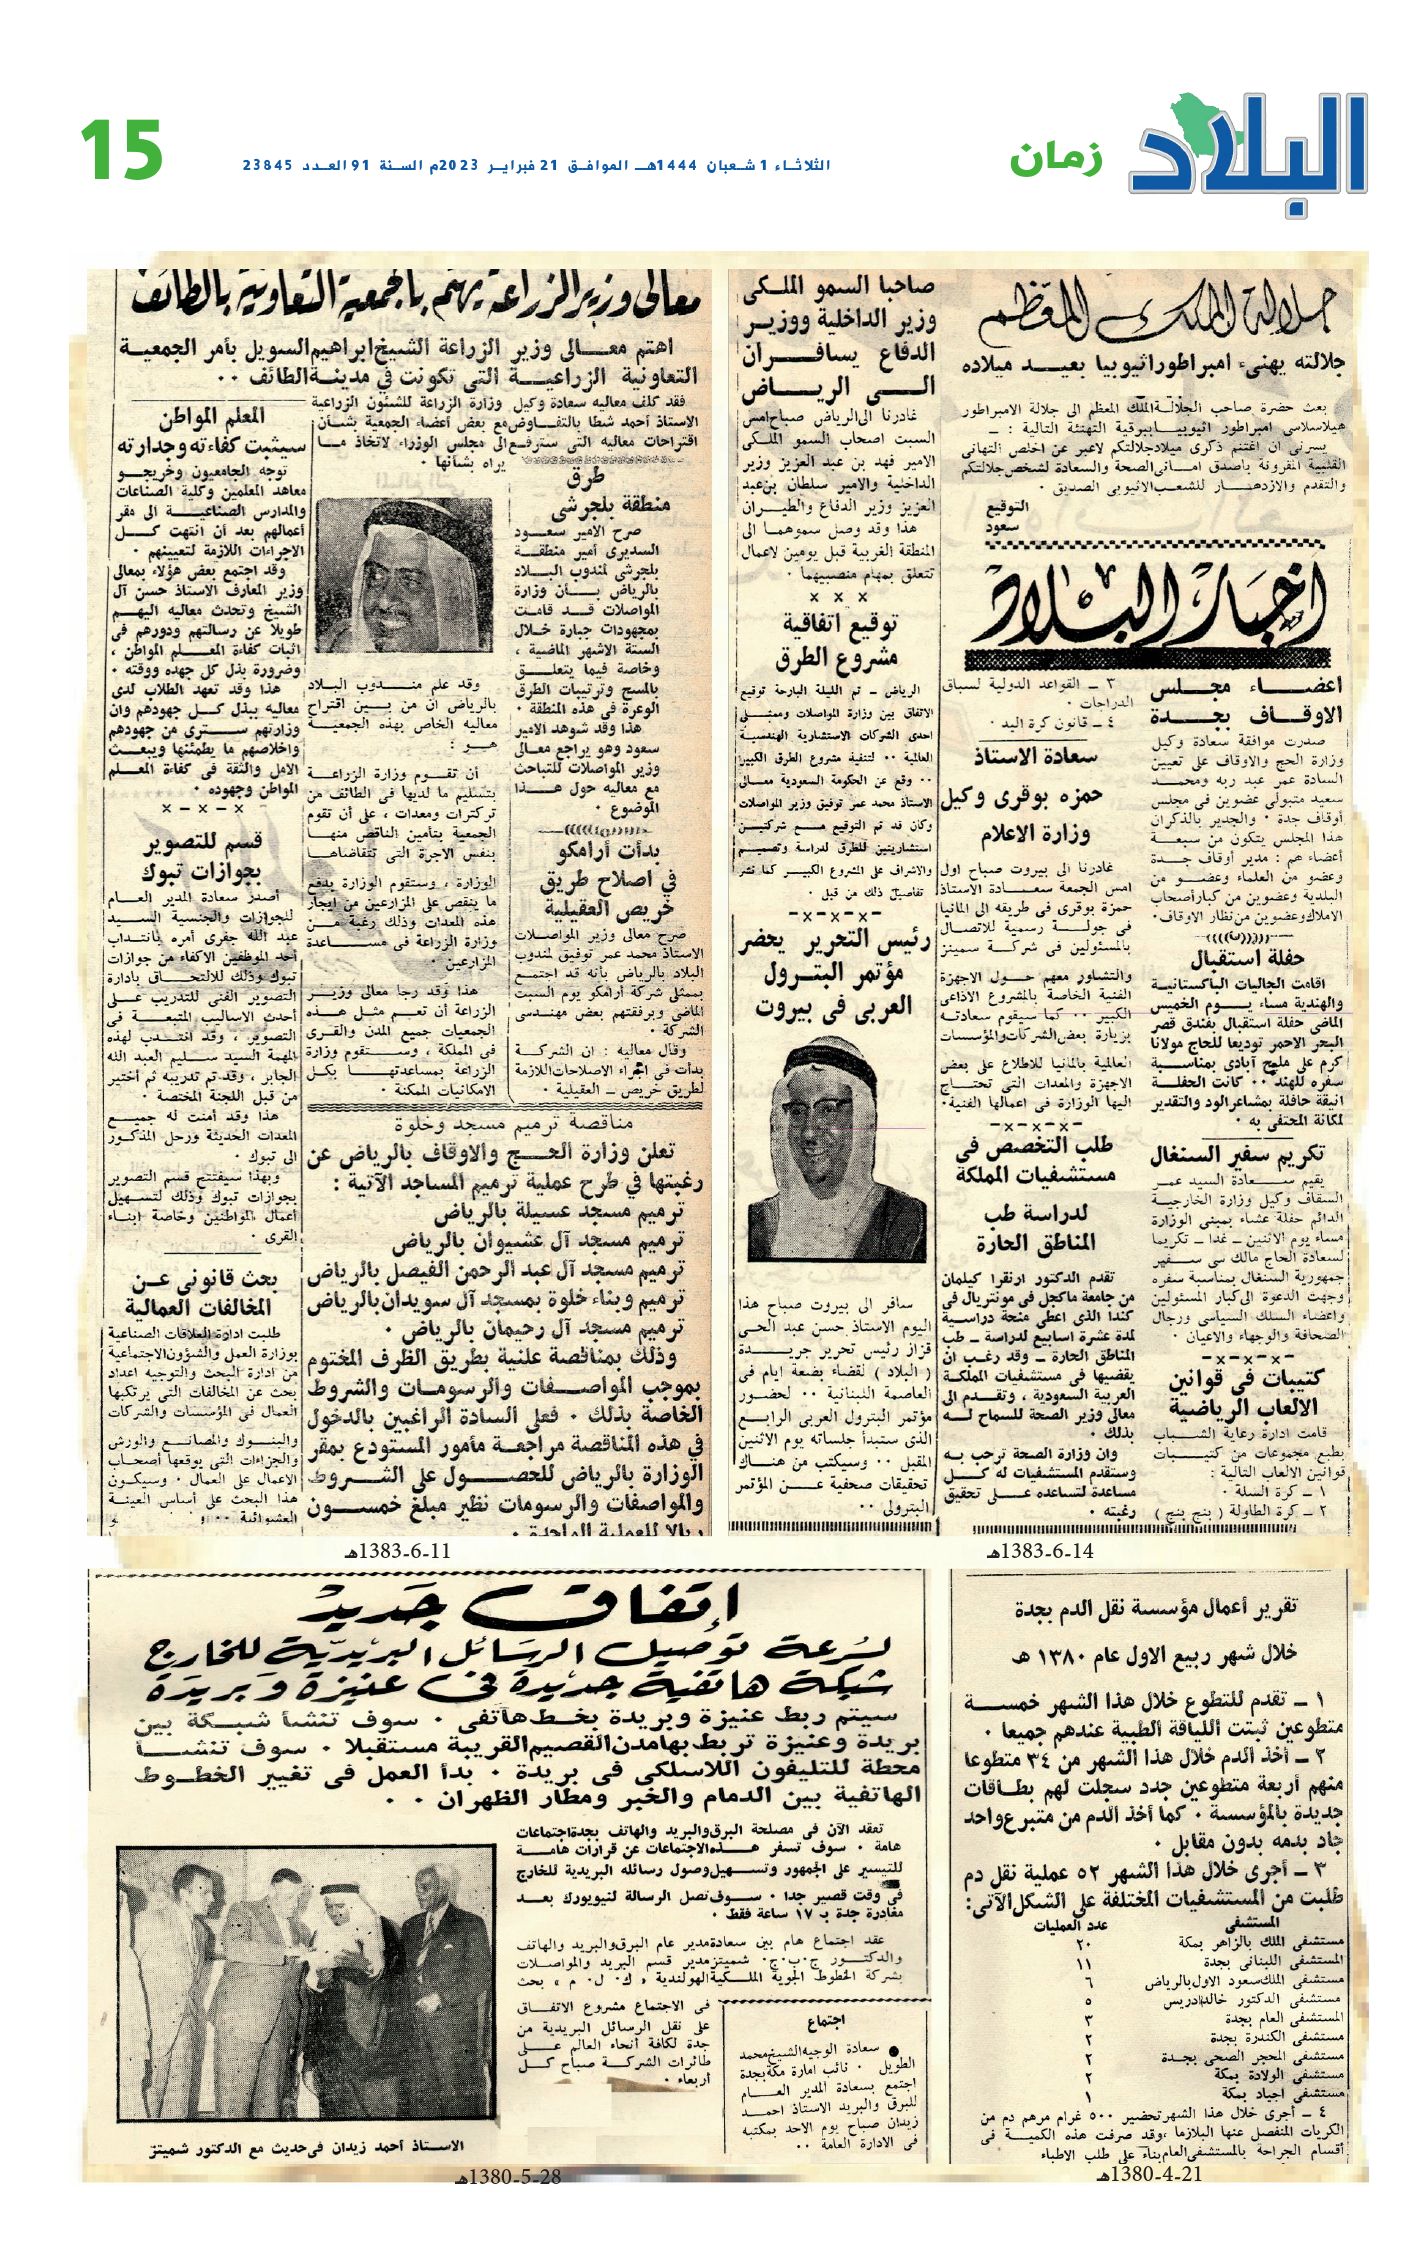 البلاد
زمان
الثلاثاء 1 شعبان 1444هـ الموافق 21 فبراير 2023م السنة 91 العدد 23845
15
جلالة الملك المعظم
جلالته يهنىء امبراطور اثيوبيا بعيد ميلاده
بعث حضرة صاحب الجلالة الملك المعظم الى جلالة الامبراطور
هيلاسلاسى امبراطور اثيوبيا ببرقية التهنئة التالية : ــ
يسرنى ان اغتنم ذكرى ميلاد جلالتكم لاعبر عن اخلص التهانى
القلبية المقرونة باصدق امانى الصحة والسعادة لشخص جلالتكم
والتقدم والازدهار للشعب الاثيوبى الصديق ٠
التوقيع
سعود
اخبار البلاد
اعضاء مجلس
الاوقاف بجدة
صدرت موافقة سعادة وكيل
وزارة الحج والاوقاف على تعيين
السادة عمر عبد ربه ومحمد
سعيد متبولى عضوين فى مجلس
أوقاف جدة ٠ والجدير بالذكران
هذا المجلس يتكون من سبعة
أعضاء هم : مدير أوقاف جدة
وعضو من العلماء وعضو من
البلدية وعضوين من كبار أصحاب
الاملاك وعضوين من نظار الاوقاف٠
حفلة استقبال
اقامت الجاليات الباكستانية
والهندية مساء يوم الخميس
الماضى حفلة استقبال بفندق قصر
البحر الاحمر توديعا للحاج مولانا
كرم على مليح آبادى بمناسبة
سفره للهند ٠٠ كانت الحفلة
انيقة حافلة بمشاعر الود والتقدير
لمكانة المحتفى به ٠
تكريم سفير السنغال
يقيم سعادة السيد عمر
السقاف وكيل وزارة الخارجية
الدائم حفلة عشاء بمبنى الوزارة
مساء يوم الاثنين ــ غدا ــ تكريما
لسعادة الحاج مالك سى سفير
جمهورية السنغال بمناسبة سفره
وجهت الدعوة الى كبار المسئولين
واعضاء السلك السياسى ورجال
الصحافة والوجهاء والاعيان ٠
ــ×ــ×ــ×ــ
كتيبات فى قوانين
الالعاب الرياضية
قامت ادارة رعاية الشباب
بطبع مجموعات من كتيبات
قوانين الالعاب التالية :
١ ــ كرة السلة ٠
٢ ــ كرة الطاولة ( بنج بنج )
٣ ــ القواعد الدولية لسباق
الدراجات ٠
٤ ــ قانون كرة اليد ٠
سعادة الاستاذ
حمزه بوقرى وكيل
وزارة الاعلام
غادرنا الى بيروت صباح اول
امس الجمعة سعادة الاستاذ
حمزة بوقرى فى طريقه الى المانيا
فى جولة رسمية للاتصال
بالمسؤولين فى شركة سمينز
والتشاور معهم حول الاجهزة
الفنية الخاصة بالمشروع الاذاعى
الكبير ٠٠ كما سيقوم سعادته
بزيارة بعض الشركات والمؤسسات
العالمية بالمانيا للاطلاع على بعض
الاجهزة والمعدات التى تحتاج
اليها الوزارة فى اعمالها الفنية٠
ــ×ــ×ــ×ــ
طلب التخصص فى
مستشفيات المملكة
لدراسة طب
المناطق الحارة
تقدم الدكتور ارنقرا كيلمان
من جامعة ماكجل فى مونتريال فى
كندا الذى اعطى منحة دراسية
لمدة عشرة اسابيع لدراسة ــ طب
المناطق الحارة ــ وقد رغب ان
يقضيها فى مستشفيات المملكة
العربية السعودية ، وتقدم الى
معالى وزير الصحة للسماح له
بذلك ٠
وان وزارة الصحة ترحب به
وستقدم المستشفيات له كل
مساعدة لتساعده على تحقيق
رغبته ٠
صاحبا السمو الملكى
وزير الداخلية ووزير
الدفاع يسافران
الى الرياض
غادرنا الى الرياض صباح امس
السبت اصحاب السمو الملكى
الامير فهد بن عبد العزيز وزير
الداخلية والامير سلطان بن عبد
العزيز وزير الدفاع والطيران
هذا وقد وصل سموهما الى
المنطقة الغربية قبل يومين لاعمال
تتعلق بمهام منصبيهما ٠
× × ×
توقيع اتفاقية
مشروع الطرق
الرياض ــ تم الليلة البارحة توقيع
الاتفاق بين وزارة المواصلات وممثلى
احدى الشركات الاستشارية الهندسية
العالمية ٠٠ لتنفيذ مشروع الطرق الكبير
٠٠ وقع عن الحكومة السعودية معالى
الاستاذ محمد عمر توفيق وزير المواصلات
وكان قد تم التوقيع مع شركتين
استشاريتين للطرق لدراسة وتصميم
والاشراف على المشروع الكبير كما نشر
تفاصيل ذلك من قبل ٠
ــ×ــ×ــ×ــ
رئيس التحرير يحضر
مؤتمر البترول
العربى فى بيروت
سافر الى بيروت صباح هذا
اليوم الاستاذ حسن عبد الحى
قزاز رئيس تحرير جريدة
( البلاد ) لقضاء بضعة ايام فى
العاصمة اللبنانية ٠٠ لحضور
مؤتمر البترول العربى الرابع
الذى ستبدأ جلساته يوم الاثنين
المقبل ٠٠ وسيكتب من هناك
تحقيقات صحفية عن المؤتمر
البترولى ٠٠
1383-6-14هـ
معالى وزير الزراعة يهتم بالجمعية التعاونية بالطائف
اهتم معالى وزير الزراعة الشيخ ابراهيم السويل بأمر الجمعية
التعاونية الزراعية التى تكونت فى مدينة الطائف ٠٠
فقد كلف معاليه سعادة وكيل وزارة الزراعة للشئون الزراعية
الاستاذ أحمد شطا بالتفاوض مع بعض أعضاء الجمعية بشأن
اقتراحات معاليه التى سترفع الى مجلس الوزراء لاتخاذ ما
يراه بشأنها ٠
طرق
منطقة بلجرشى
صرح الامير سعود
السديرى أمير منطقة
بلجرشى لمندوب البلاد
بالرياض بأن وزارة
المواصلات قد قامت
بمجهودات جبارة خلال
الستة الاشهر الماضية ،
وخاصة فيما يتعلق
بالمسح وترتيبات الطرق
الوعرة فى هذه المنطقة ٠
هذا وقد شوهد الامير
سعود وهو يراجع معالى
وزير المواصلات للتباحث
مع معاليه حول هذا
الموضوع ٠
بدأت أرامكو
فى اصلاح طريق
خريص العقيلية
صرح معالى وزير المواصلات
الاستاذ محمد عمر توفيق لمندوب
البلاد بالرياض بأنه قد اجتمع
بممثلى شركة أرامكو يوم السبت
الماضى وبرفقتهم بعض مهندسى
الشركة ٠
وقال معاليه : ان الشركة
بدأت فى اجراء الاصلاحات اللازمة
لطريق خريص ــ العقيلية ٠
وقد علم مندوب البلاد
بالرياض ان من بين اقتراح
معاليه الخاص بهذه الجمعية
هو :
أن تقوم وزارة الزراعة
بتسليم ما لديها فى الطائف من
تركترات ومعدات ، على أن تقوم
الجمعية بتأمين الناقص منها
بنفس الاجرة التى تتقاضاها
الوزارة ، وستقوم الوزارة بدفع
ما ينقص على المزارعين من ايجار
هذه المعدات وذلك رغبة من
وزارة الزراعة فى مساعدة
المزارعين ٠
هذا وقد رجا معالى وزير
الزراعة أن تعم مثل هذه
الجمعيات جميع المدن والقرى
فى المملكة ، وستقوم وزارة
الزراعة بمساعدتها بكل
الامكانيات الممكنة ٠
المعلم المواطن
سيثبت كفاءته وجدارته
توجه الجامعيون وخريجو
معاهد المعلمين وكلية الصناعات
والمدارس الصناعية الى مقر
أعمالهم بعد أن انتهت كل
الاجراءات اللازمة لتعيينهم ٠
وقد اجتمع بعض هؤلاء بمعالى
وزير المعارف الاستاذ حسن آل
الشيخ وتحدث معاليه اليهم
طويلا عن رسالتهم ودورهم فى
اثبات كفاءة المعلم المواطن ،
وضرورة بذل كل جهده ووقته ٠
هذا وقد تعهد الطلاب لدى
معاليه ببذل كل جهودهم وان
وزارتهم سترى من جهودهم
واخلاصهم ما يطمئنها ويبعث
الامل والثقة فى كفاءة المعلم
المواطن وجهوده ٠
×ــ×ــ×ــ×
قسم للتصوير
بجوازات تبوك
أصدر سعادة المدير العام
للجوازات والجنسية السيد
عبد الله جفرى أمره بانتداب
أحد الموظفين الاكفاء من جوازات
تبوك وذلك للالتحاق بادارة
التصوير الفنى للتدريب على
أحدث الاساليب المتبعة فى
التصوير ، وقد انتدب لهذه
المهمة السيد سليم العبد الله
الجابر ، وقد تم تدريبه ثم أختير
من قبل اللجنة المختصة ٠
هذا وقد أمنت له جميع
المعدات الحديثة ورحل المذكور
الى تبوك ٠
وبهذا سيفتتح قسم التصوير
بجوازات تبوك وذلك لتسهيل
أعمال المواطنين وخاصة ابناء
القرى ٠
بحث قانونى عن
المخالفات العمالية
طلبت ادارة العلاقات الصناعية
بوزارة العمل والشؤون الاجتماعية
من ادارة البحث والتوجيه اعداد
بحث عن المخالفات التى يرتكبها
العمال فى المؤسسات والشركات
والبنوك والمصانع والورش
والجزاءات التى يوقعها أصحاب
الاعمال على العمال ٠ وسيكون
هذا البحث على أساس العينة
العشوائية ٠٠٠
مناقصة ترميم مسجد وخلوة
تعلن وزارة الحج والاوقاف بالرياض عن
رغبتها فى طرح عملية ترميم المساجد الآتية :
ترميم مسجد عسيلة بالرياض
ترميم مسجد آل عشيوان بالرياض
ترميم مسجد آل عبد الرحمن الفيصل بالرياض
ترميم وبناء خلوة بمسجد آل سويدان بالرياض
ترميم مسجد آل رحيمان بالرياض ٠
وذلك بمناقصة علنية بطريق الظرف المختوم
بموجب المواصفات والرسومات والشروط
الخاصة بذلك ٠ فعلى السادة الراغبين بالدخول
فى هذه المناقصة مراجعة مأمور المستودع بمقر
الوزارة بالرياض للحصول على الشروط
والمواصفات والرسومات نظير مبلغ خمسون
ريالا للعملية الواحدة ٠
1383-6-11هـ
تقرير أعمال مؤسسة نقل الدم بجدة
خلال شهر ربيع الاول عام ١٣٨٠ هـ
١ ــ تقدم للتطوع خلال هذا الشهر خمسة
متطوعين ثبتت اللياقة الطبية عندهم جميعا ٠
٢ ــ أخذ الدم خلال هذا الشهر من ٣٤ متطوعا
منهم أربعة متطوعين جدد سجلت لهم بطاقات
جديدة بالمؤسسة ٠ كما أخذ الدم من متبرع واحد
جاد بدمه بدون مقابل ٠
٣ ــ أجرى خلال هذا الشهر ٥٢ عملية نقل دم
طلبت من المستشفيات المختلفة على الشكل الآتى:
المستشفى عدد العمليات
مستشفى الملك بالزاهر بمكة ٢٠
المستشفى اللبنانى بجدة ١١
مستشفى الملك سعود الاول بالرياض ٦
مستشفى الدكتور خالد ادريس ٥
المستشفى العام بجدة ٣
مستشفى الكندرة بجدة ٢
مستشفى المحجر الصحى بجدة ٢
مستشفى الولادة بمكة ٢
مستشفى اجياد بمكة ١
٤ ــ أجرى خلال هذا الشهر تحضير ٥٠٠ غرام مرهم دم من
الكريات المنفصل عنها البلازما ، وقد صرفت هذه الكمية فى
أقسام الجراحة بالمستشفى العام بناء على طلب الاطباء
1380-4-21هـ
إتفاق جديد
لسرعة توصيل الرسائل البريدية للخارج
شبكة هاتفية جديدة فى عنيزة وبريدة
سيتم ربط عنيزة وبريدة بخط هاتفى ٠ سوف تنشأ شبكة بين
بريدة وعنيزة تربط بها مدن القصيم القريبة مستقبلا ٠ سوف تنشأ
محطة للتليفون اللاسلكى فى بريدة ٠ بدأ العمل فى تغيير الخطوط
الهاتفية بين الدمام والخبر ومطار الظهران ٠ ٠
تعقد الآن فى مصلحة البرق والبريد والهاتف بجدة اجتماعات
هامة ٠ سوف تسفر هذه الاجتماعات عن قرارات هامة
للتيسير على الجمهور وتسهيل وصول رسائله البريدية للخارج
فى وقت قصير جدا ٠ سوف تصل الرسالة لنيويورك بعد
مغادرة جدة بـ ١٧ ساعة فقط ٠
عقد اجتماع هام بين سعادة مدير عام البرق والبريد والهاتف
والدكتور ج٠ب٠ج٠ شميتز مدير قسم البريد والمواصلات
بشركة الخطوط الجوية الملكية الهولندية « ك٠ ل٠ م » بحث
فى الاجتماع مشروع الاتفاق
على نقل الرسائل البريدية من
جدة لكافة أنحاء العالم على
طائرات الشركة صباح كل
أربعاء ٠
اجتماع
● سعادة الوجيه الشيخ محمد
الطويل ٠ نائب امارة مكة بجدة
اجتمع بسعادة المدير العام
للبرق والبريد الاستاذ احمد
زيدان صباح يوم الاحد بمكتبه
فى الادارة العامة ٠٠
الاستاذ أحمد زيدان فى حديث مع الدكتور شميتز
1380-5-28هـ